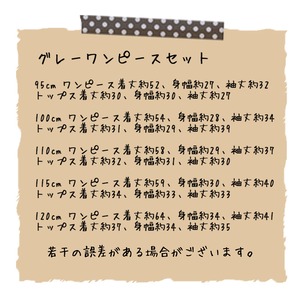 グレーワンピースセット
95cm ワンピース着丈約52、身幅約27、袖丈約32
トップス着丈約30、身幅約30、袖丈約27
100cm ワンピース着丈約54、身幅約28、袖丈約34
トップス着丈約31、身幅約29、袖丈約39
110cm ワンピース着丈約58、身幅約29、袖丈約37
トップス着丈約32、身幅約31、袖丈約30
115cm ワンピース着丈約59、身幅約30、袖丈約40
トップス着丈約34、身幅約33、袖丈約33
120cm ワンピース着丈約64、身幅約34、袖丈約41
トップス着丈約39、身幅約34、袖丈約35
若干の誤差がある場合がございます。